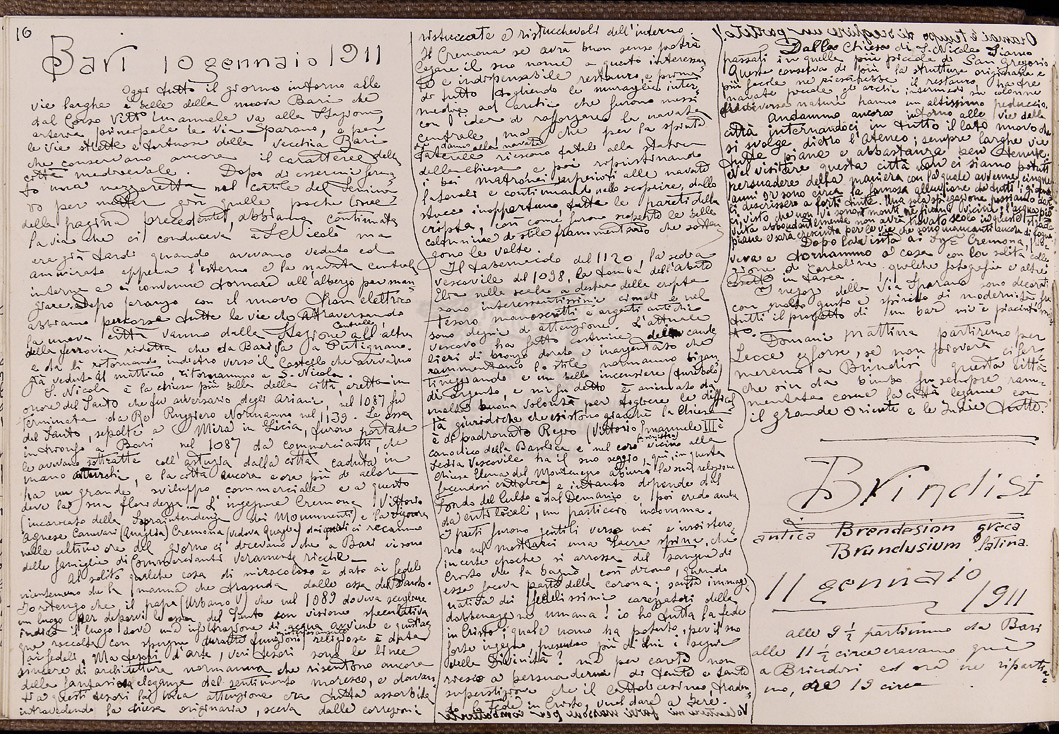 16
Bari 10 gennaio 1911
Oggi tutto il giorno intorno alle
vie larghe e belle della nuova Bari che
dal Corso Vitt. Emanuele va alla Stazione,
arteria principale la Via Sparano, e per
le vie strette e tortuose della Vecchia Bari
che conservano ancora il carattere della
città medioevale. Dopo di esserci
nel cortile del
per
della pagina precedente, abbiamo continuata
la via che ci conduceva S. Nicola, ma
era già tardi quando avevamo veduto ed
ammirato appena l'esterno e la navata centrale
interna e ci convenne tornare all'albergo per man
giare. Dopo pranzo con il nuovo tram elettrico
abbiamo percorso tutte le vie che attraversando
la nuova città vanno dalla Stazione Centrale all'altra
della ferrovia ridotta che da Bari va a Putignano,
e da lì ritornando indietro verso il Castello che avevamo
già veduto il mattino, ritornammo a S. Nicola.
S. Nicola è la chiesa più bella della città eretta in
onore del Santo che fu avversario degli Ariani nel 1087 fu
terminata da Re Ruggiero Normanno nel 1139. Le ossa
del Santo, sepolte a Mira in Licia, furono portate
in Bari nel 1087 da commercianti che
le avevano sottratte coll'astuzia dalla città caduta in
mano ai turchi, e la città ancora e ora più di allora
ha un grande sviluppo commerciale e a questo
deve la sua floridezza. L'ingegnere Cremona (Vittorio)
incaricato della Soprintendenza dei Monumenti e la signora
Cremona
nelle ultime ore del giorno ci dicevano che a Bari vi sono
delle famiglie di commercianti veramente ricche.
Al solito qualche cosa di miracoloso è dato ai fedeli
la manna che trasuda dalle ossa del Santo.
che il papa Urbano II che nel 1089 doveva scegliere
un luogo per deporvi le ossa del Santo con visione speculativa
indicò il luogo dove una infiltrazione di acqua avviene e questa
raccolta con
durante funzioni religiose è data
ai fedeli. Ma tesori d'arte, veri tesori sono le linee
sincere di architettura normanna che risentono ancora
della fantasiosa eleganza del sentimento moresco, e davanti
a questi tesori la mia attenzione era tutta assorbita,
intravedendo la chiesa originaria, scevra dalle correzioni
ristuccate e ristucchevoli dell'interno.
Il Cremona se avrà buon senso potrà
legare il suo nome a questo interessan
te e indispensabile restauro, e prima
di tutto togliendo le muraglie inter
medie ad archi che furono messi
con l'idea di rafforzare la navata
centrale, ma che per la spinta
che danno alla navata
laterale riescono fatali alla statica
della chiesa e poi ripristinando
i bei matronei superiori alle navate
laterali e continuando nello scoprire, dallo
stucco inopportuno tutte le pareti della
cripta, come furono scoperte le belle
colonnine di stile frammentario che sosten
gono le volte.
Il tabernacolo del 1120, la sedia
vescovile del 1098, la tomba dell'abate
Elia nella scala a destra della cripta
sono interessantissimi cimeli e nel
tesoro manoscritti, argenti antichi
sono degni di attenzione. L'attuale
vescovo ha
di bronzo dorato e inargentato che
rammentano lo stile normanno bizan
tineggiando e un bello incensiere (turribolo)
di argento, e mi è detto è animato da
molta buona volontà per togliere le difficol
tà giuridiche che esistono giacchè la Chiesa
è di padronato Regio (Vittorio Emanuele III è
canonico della Basilica e nel coro vicino alla
Sedia Vescovile ha il suo seggio, qui, in questa
chiesa Elena del Montenegro abiurò la sua religione
facendosi cattolica) e intanto dipende dal
Fondo del Culto e dal Demanio e poi credo anche
da enti locali, un pasticcio insomma.
I preti furono gentili verso noi e insistero
no nel mostrarci una Sacra spina, che
in certe epoche si arrossa del sangue di
Cristo che la bagnò, così dicono, quando
essa faceva parte della corona; santa immagi
nativa dei fedelissimi
dabbenaggine umana! io ho tutta la fede
in Cristo; quale uomo ha potuto, per il suo
forte ingegno, possedere più di lui i segni
della Divinità! ma per carità non
riesco a persuadermi di tante e tante
superstizioni che il cattolicesimo,
la fede in Cristo, vuol dare a bere.
Dalla Chiesa di S. Nicola siamo
passati in quella più piccola di San Gregorio.
Questa conserva di più la struttura originaria e
più facile ne riescirebbe il restauro, ha tre
navate piccole gli archi intermedi su colonne
di diversa natura hanno un altissimo peduccio.
Andammo ancora intorno alle vie della
città internandoci in tutto il lato nuovo che
si svolge dietro l'Ateneo; sempre larghe vie
tutte piane e abbastanza però tenute.
Nel visitare questa città non ci siamo potuti
persuadere della maniera con la quale avvenne cinque
anni or sono circa la famosa alluvione che tutti i giornali
ci descrissero a forti tinte. Una sola spiegazione
visto che non vi sono monti nè fiumi vicini; l'acqua pio
vuta abbondantemente non avrà trovato scolo in queste vie
piane e sarà cresciuta per le vie che sono mancanti ancora di fogna.
Dopo la visita ai Sig. Cremona,
e tornammo a casa con la solita
di Cartoline, qualche fotografia e altri
in tasca.
I negozi della Via Sparano sono decorati
con molto gusto e spirito di modernità, fra
tutti il progetto di un bar mi è piaciuto.
Domani mattina partiremo per
Lecce e forse, se non pioverà ci fer
meremo a Brindisi questa città
che sin da bimbo fu sempre ram
mentata come la città legame con
il grande oriente e le Indie tutte.
Brindisi
antica Brendesion greca
Brundusium latina.
11 gennaio 1911
alle 9 ½ partimmo da Bari
alle 11 ½ circa eravamo qui
a Brindisi ed ora ne ripartia
mo, ore 19 circa